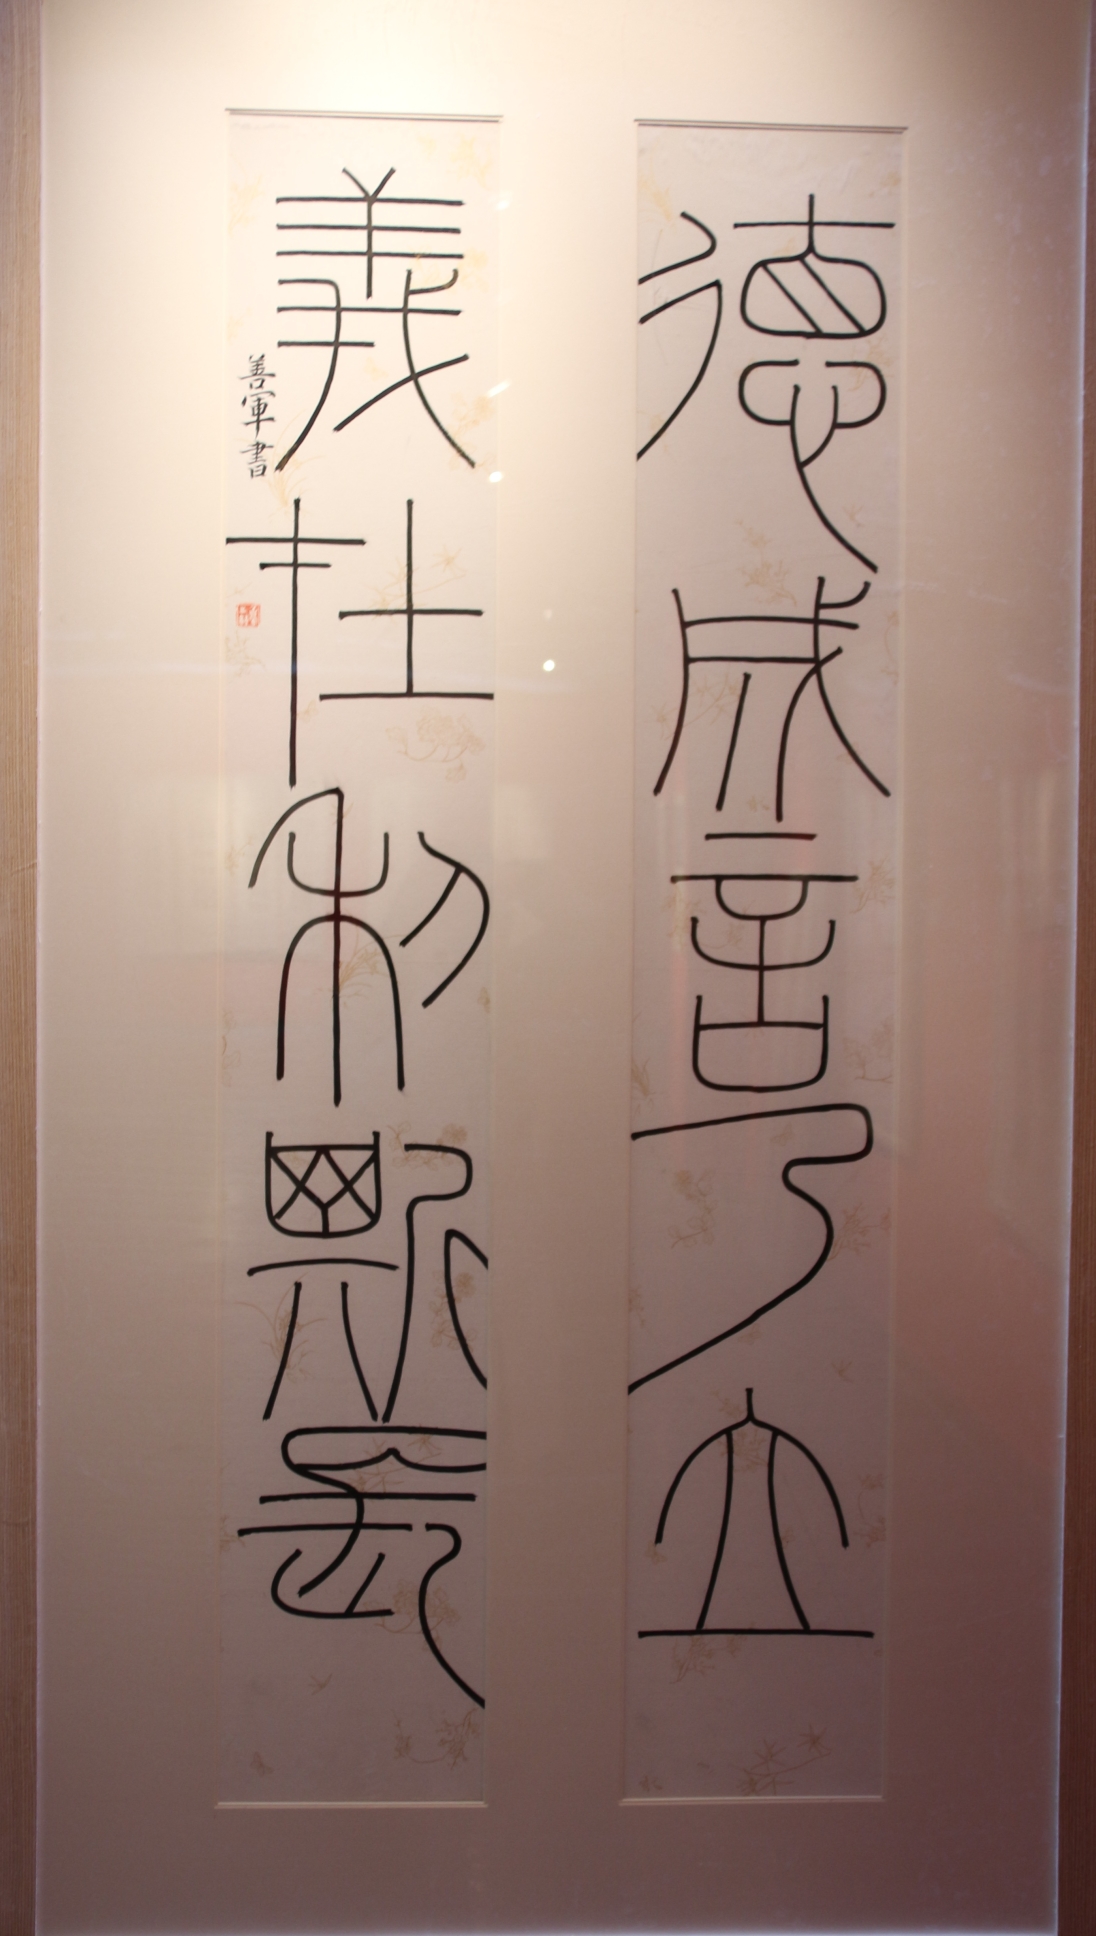 德成言乃立
義在利斯長
善軍書